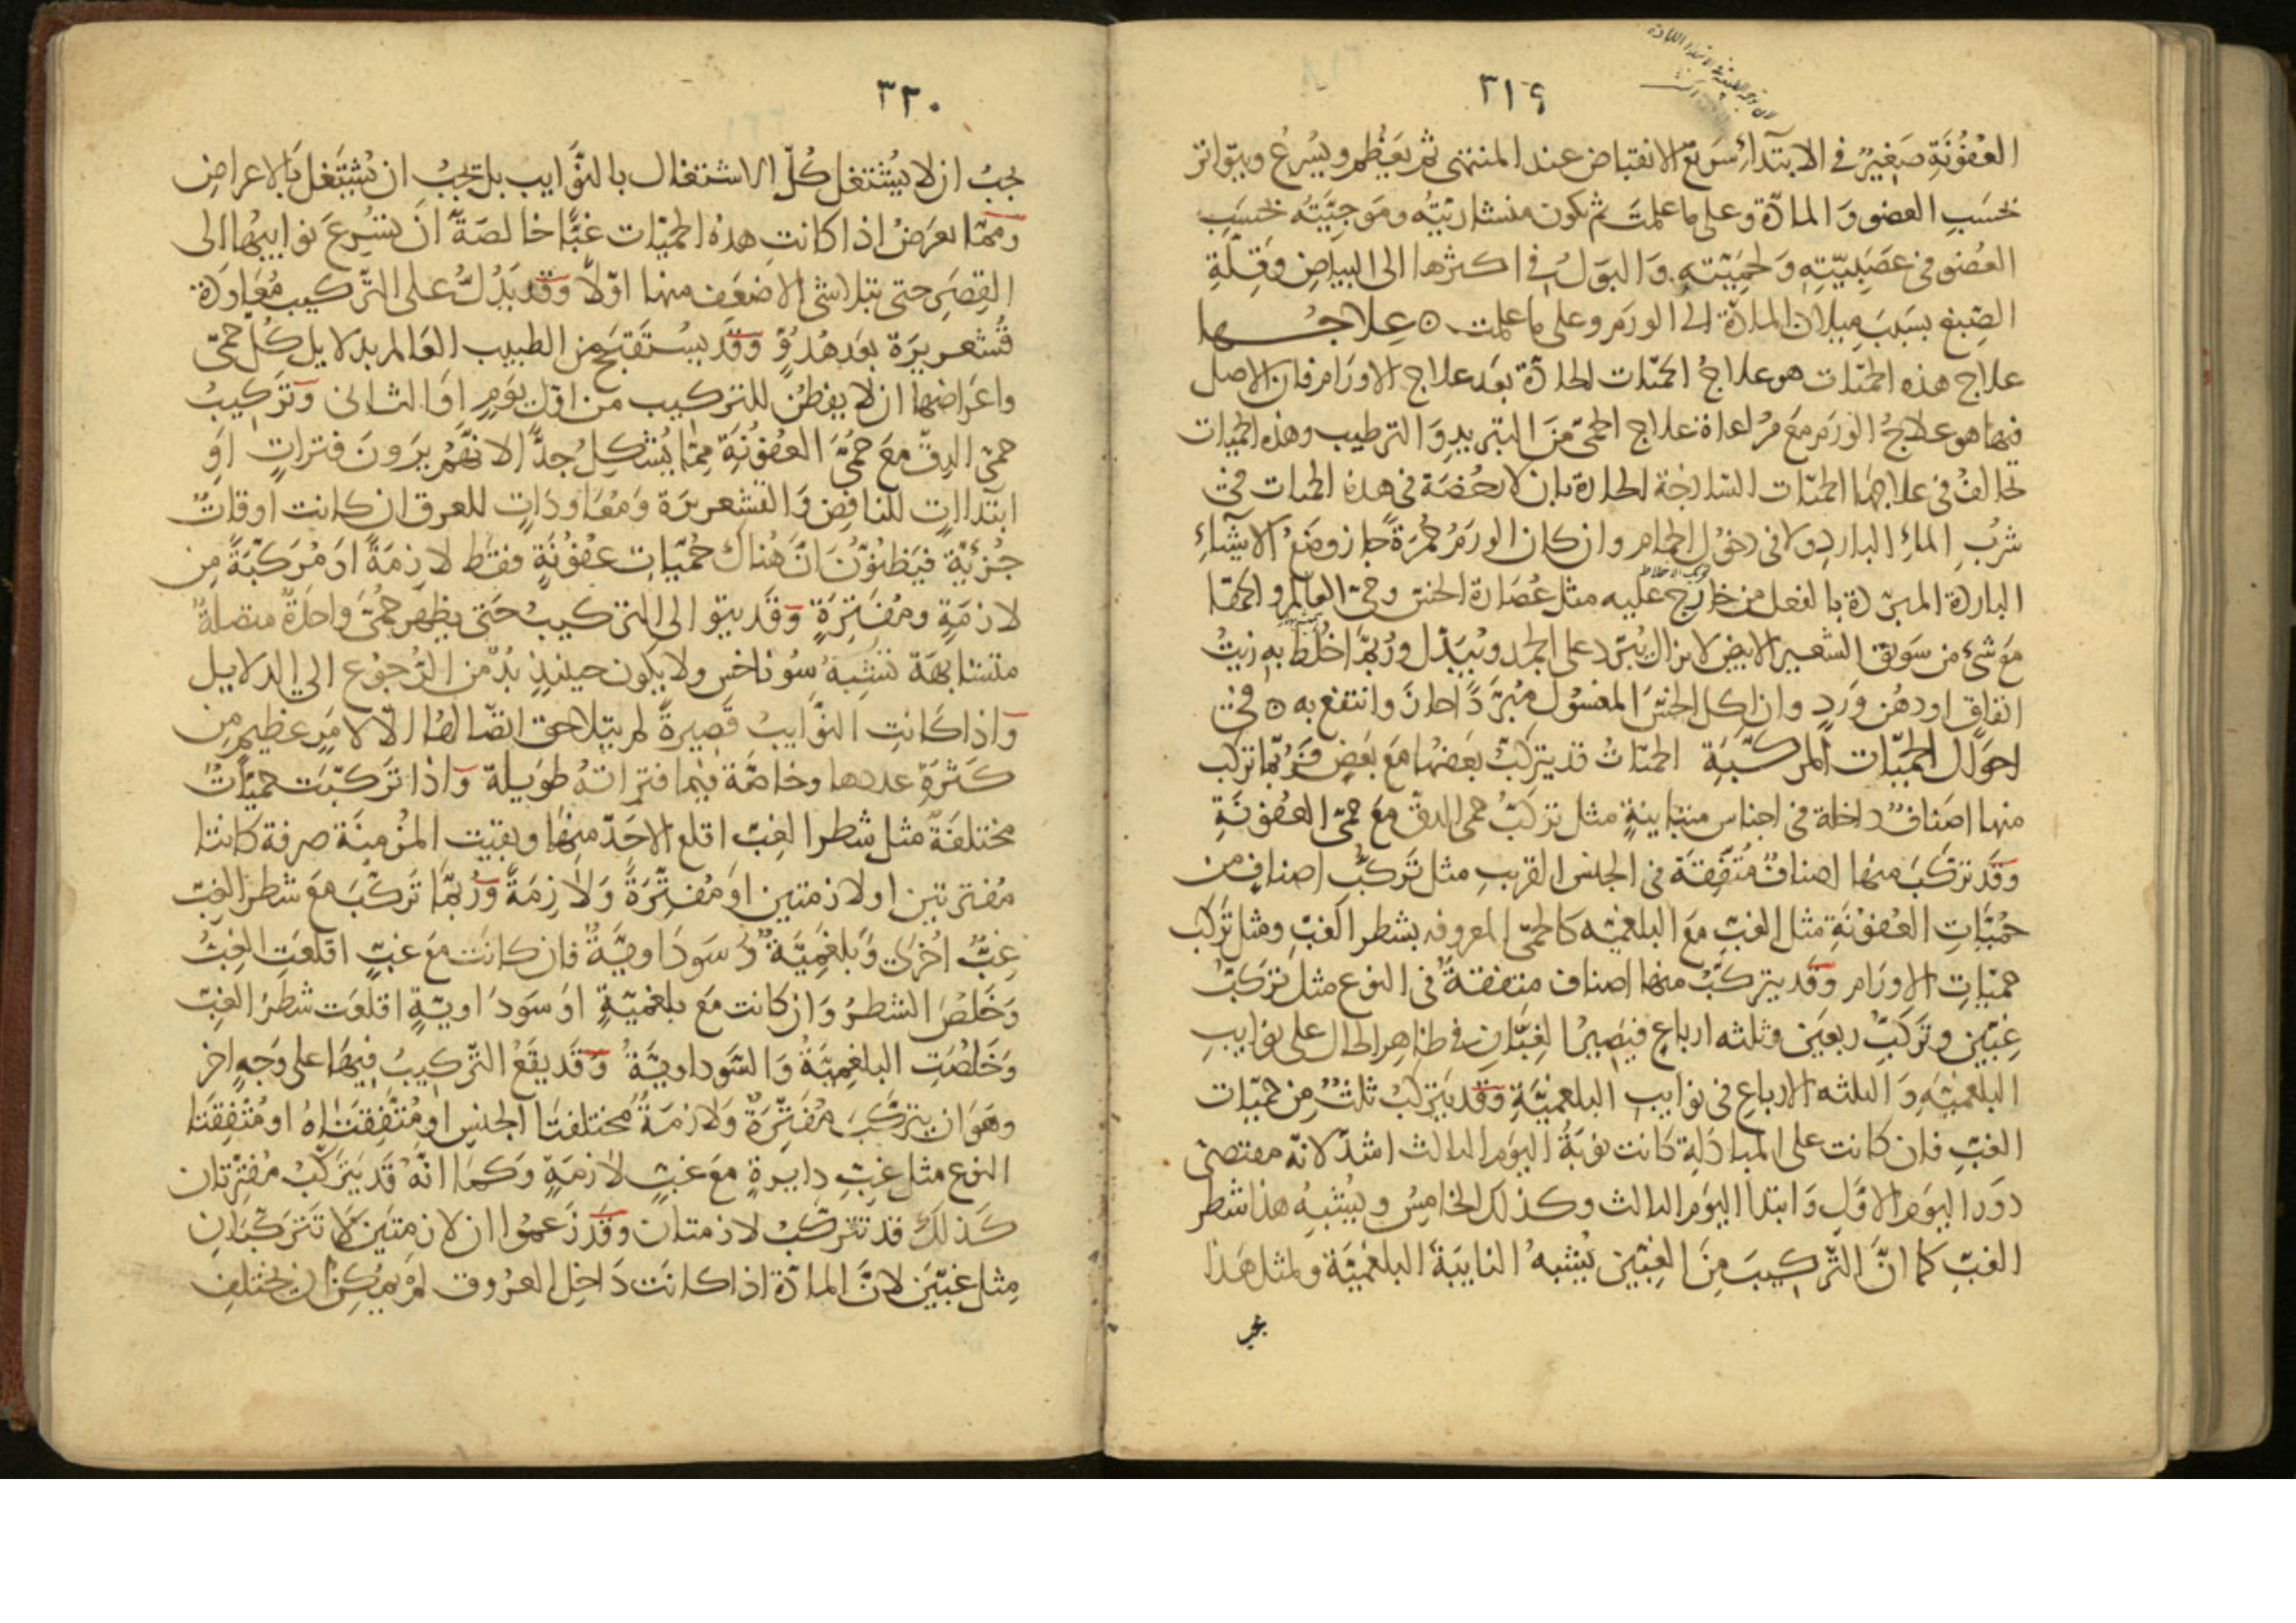 ٣١٩
العُفُونَةِ صَغِيرٌ في الابتدآءِ سَريع الانقباض عند المنتهى ثم يَعْظُم ويُسرعُ ويتواتر
بحَسَبِ العضو وَالمادّة وعلى ما علمتَ ثم يكون منشاريّتُه ومَوجيَّتُه بحسَبِ
العُضو في عَصَبِيّتِهِ وَلحمِيّتِهِ وَالبَولُ في اكثرها الى البياضِ وَقِلّةِ
الصِّبغ بسَبَبِ مِيلان المادّة الى الورَم وعلى ما علمت ٥ عِلاجُها
علاج هذه الحمّيات هو علاجُ الحمّيات الحادّة بعَد علاج الاورَام فان الاصل
فيها هو علاجُ الوَرَم مَعَ مُراعاة علاج الحمى مِنَ التبريدِ وَالترطيب وهذه الحميات
تخالفُ في علاجها الحمّيات السّاذجَة الحادة بان لا رخصَة في هذه الحميات في
شُربِ المآءِ الباردِ ولا في دخُول الحمام وان كان الورَمُ حُمرَةً جاز وضعُ الاشيآء
الباردة المبرّدة بالفعل من خارج عليه مثل عُصَارة الخسّ وحيّ العالم والحمقا
مَعَ شئ من سَويق الشعير الابيض لا يزال يُبَرّد على الجمد ويُبَدّل ورُبَّما خُلِطَ بهِ زيتُ
انفاقٍ او دهُن وَردٍ وان اكل الخسّ المغسُول مُبرَّدًا جازَ وانتفع به ٥ في
احوَال الحمّيات المركّبَةِ الحمّياتُ قد يتركّبُ بعَضُها مَعَ بعَضٍ فَرُبّما تركّب
منها اصنافٌ داخلة في اجناس متباينةٍ مثل تركّبُ حمى الدقّ مَعَ حمّى العفُونَةِ
وقَد تركّبَ منها اصنافٌ مُتّفِقَة في الجنس القريبِ مثل تَركّبُ اصنافٍ من
حُمّيَاتِ العفُونَةِ مثل الغبّ مَعَ البلغميّه كالحمّى المعروفه بشطر الغبّ ومثل تركّب
حمّيَاتِ الاورَام وقَد يتركّبُ منها اصناف متفقةٌ في النوع مثل تركّبُ
غِبّين وتركّبُ ربعَين وثلثه ارباع فيَصِيرُ الغِبّانِ في ظاهر الحال على نوايبِ
البلغميّهِ وَالثلثه الارباعِ في نوايب البلغميَّةِ وقَد يَتركّبُ ثلثٌ مِن حمّيَات
الغبّ فان كانت على المبادَلةِ كانت نوبَةُ اليوَم الثالث اشدّ لانّه مقتضى
دوَر اليوَم الاوّلِ وَابتدا اليوَم الثالث وكذلك الخامِسُ ويُشبِهُ هذا شطر
الغبّ كما انَّ التَّركيبَ مِنَ الغِبَّين يُشبهُ النايبَة البلغميَّة ولمثل هَذا
٣٢٠
يجبُ ان لا يُشتغل كُلّ الاشتغال بالنَّوَايب بل يَجبُ ان يُشتَغل بَالاعراضِ
ومّما يعرَضُ اذا كانتِ هذهُ الحمّيّات غبًّا خالصَةً ان تسُرعَ نوايبُها الى
القِصَرِ حتى يتلاشى الاضعَف منها اوّلًا وَقد يَدُلُّ على التّركيب مُعَاوَدَة
قُشَعريرَة بعَد هُدُوٍّ وَقَد يسُتقبَح من الطبيب العَالم بدلايل كُلّ حمّى
واعرَاضها ان لا يفطُن للتركيب من اوّل يوَمٍ اوَالثانى وَتَركيبُ
حمّى الدِقّ مَعَ حُمّى العفُونَةِ مِمّا يُشكِلُ جدًّا الا نّهُم يرَونَ فتراتٍ اوَ
ابتداآتٍ للنافِض وَالقشعريرَة وَمُعَاودَاتٍ للعرق ان كانت اوقاتٌ
جُزئيّةٌ فيَظنوّنَ انّ هُناك حُمّيَاتِ عفوُنَةٍ فقط لازمَةً اوَ مُرَكّبَةً مِن
لازمَةٍ ومُفَترَةٍ وَقَد يتو الى التركيبُ حَتى يظهرَ حُمّى واحدَةً متصلةً
متشابهَة تشبِهُ سُوناخس ولا يكون حينئذٍ بُدّ من الرُّجوُع الى الدلايل
وَاذا كَانتِ النوَّايبُ قصيرةً لم يتلاحق اتصّالهُا الّا لامَرٍ عظيمٍ مِن
كَثرَةِ عددها وخاصّة فيما فتراتهُ طوَيلة وَاذا تَركّبَت حمّيَاتٌ
مختلفَة مثل شطر الغبّ اقلع الاحَدّ منهَا وبقيَت المزُمِنَة صرفة كانتا
مُفترتين او لازمتين اوَ مُفترّةً وَلَازِمَةً وَرُبّما تَركّبَ مَعَ شطر الغبّ
غِبٌّ اخُرَى وَبلغَمِيَّةٌ وَسَودَاويَّةٌ فان كانَت مَع غبّ اقلعَتِ الغِبُّ
وَخَلصَ الشطرُ وَان كانت مَعَ بلغميّةٍ اوَ سَودَاويّةٍ اقلعَت شطرَ الغِبّ
وَخَلصَتِ البلغِميَّةُ وَالسَّوداويَّةُ وَقَد يقَعُ التّركيبُ فيهَا على وَجهٍ اخر
وهوَ ان يتركّبَ مُفَتِّرَةٌ وَلَازمَةٌ مختلفتَا الجنسِ اومُتَّفِقَتَاهُ او مُتَّفِقَتَا
النوع مثل غِبّ دايرةٍ مَع غبّ لَازمَةٍ وَكما انّهُ قَد يَتركّبُ مُفترّتان
كَذلكَ قد تتركّبُ لازمتان وَقَد زَعَموُا ان لازمتَين لَا تَتَركّبَانِ
مِثل غبَّيَن لانَّ المادّة اذا كانَت دَاخِل العرُوق لم يمكِن ان يختلف